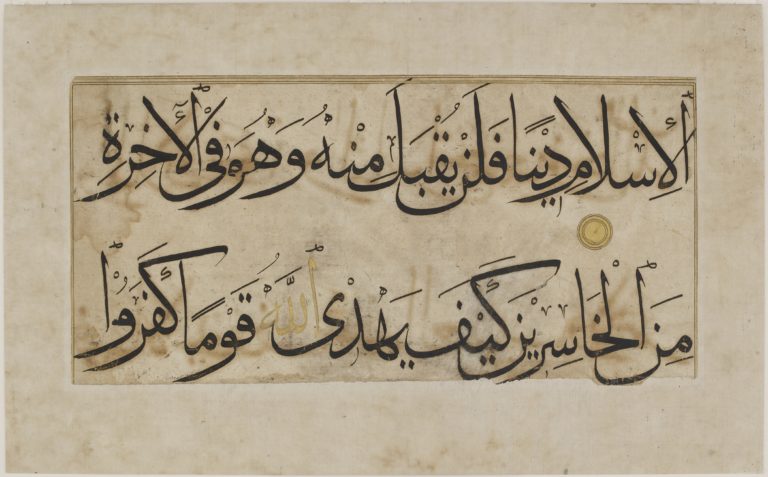 ٱلْإِسْلَامِ دِيْنًا فَلَنْ يُقْبَلَ مِنْهُ وَهُوَ فِى ٱلْآخِرَةِ
مِنَ ٱلْخَاسِرِيْنَ كَيْفَ يَهْدِى ٱللَّهُ قَوْمًا كَفَرُوْا